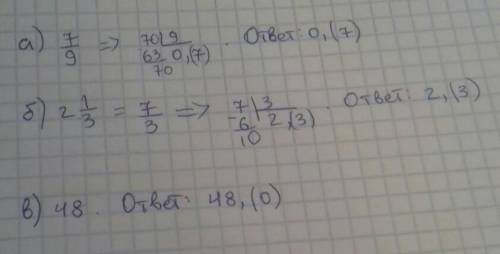 а) 7/9 => 70 | 9 . Ответ: 0,(7)
63 0,(7)
70
б) 2 1/3 = 7/3 => 7 | 3 . Ответ: 2,(3)
-6 2,(3)
10
в) 48. Ответ: 48,(0)